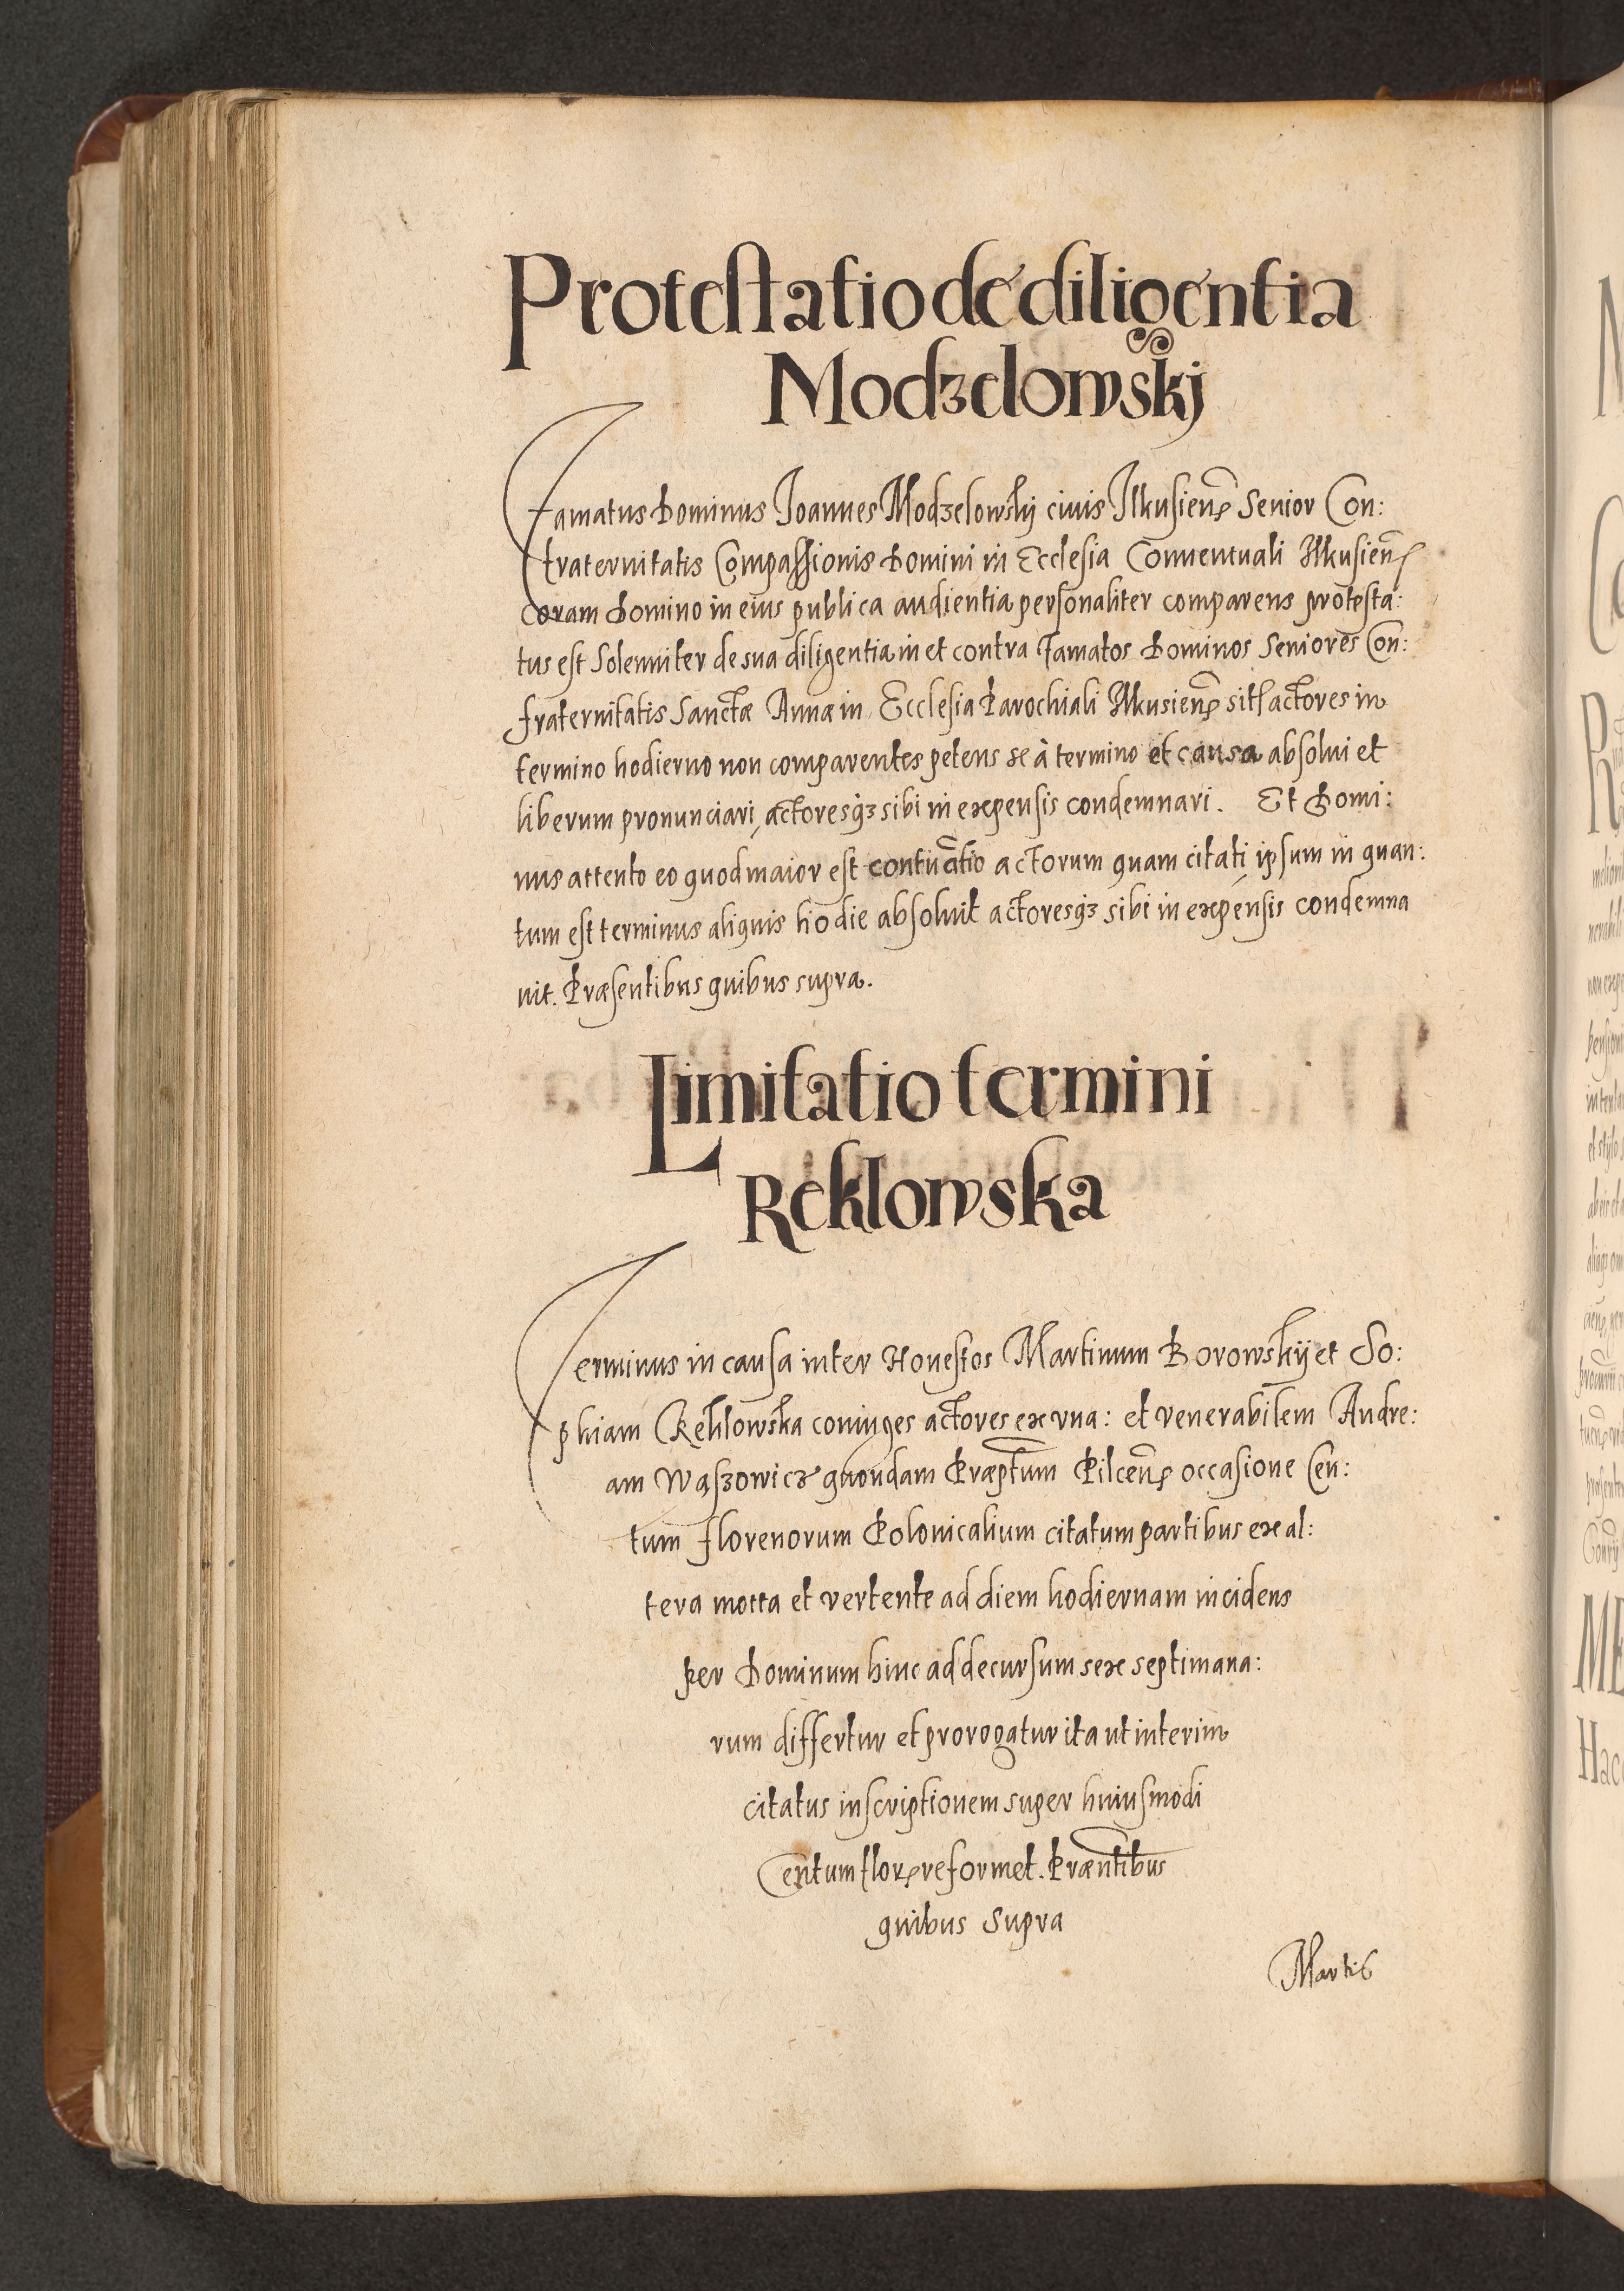 Protestatio de diligentia
Modzelowskj
Famatus Dominus Joannes Modzelowskij ciuis Ilkusien̄ Senior Con:
fraternitatis Compassionis Domini in Ecclesia Conuentuali Ilkusien̄
coram Domino in eius publica audientia personaliter comparens protesta:
tus est Solenniter de sua diligentia in et contra Famatos Dominos Seniores Con:
fraternitatis Sanctæ Annæ in Ecclesia Parochiali Ilkusien̄ sitæ actores in
termino hodierno non comparentes petens se à termino et causa absolui et
liberum pronunciari, actoresqꝫ sibi in expensis condemnari. Et Domi:
nus attento eo quod maior est contūatio actorum quam citati, ipsum in quan:
tum est terminus aliquis hodie absoluit actoresqꝫ sibi in expensis condemna
uit. Præsentibus quibus supra.
Limitatio termini
Reklowska
Terminus in causa inter Honestos Martinum Borowskij et So:
phiam Reklowska coniuges actores ex vna: et venerabilem Andre:
am Wąszowicz quondam Præptum Pilcen̄ occasione Cen:
tum florenorum Polonicalium citatum partibus ex al:
tera mota et vertente ad diem hodiernam incidens
per Dominum hinc ad decursum sex septimana:
rum differtur et prorogatur ita ut interim
citatus inscriptionem super huiusmodi
Centum flor reformet. Præntibus
quibus supra
Martis